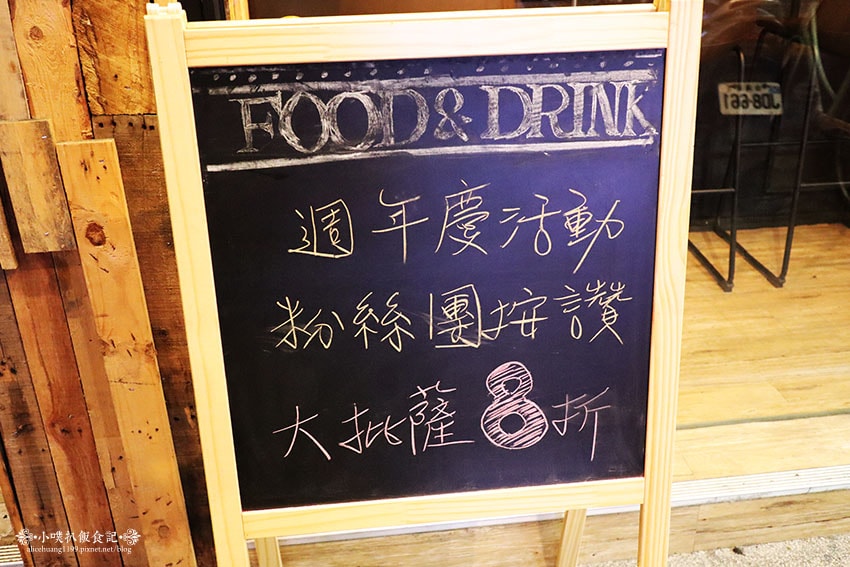 FOOD & DRINK
週年慶活動
粉絲團按讚
大批薩8折
小噗扒飯食記
alicehuang1199.pixnet.net/blog